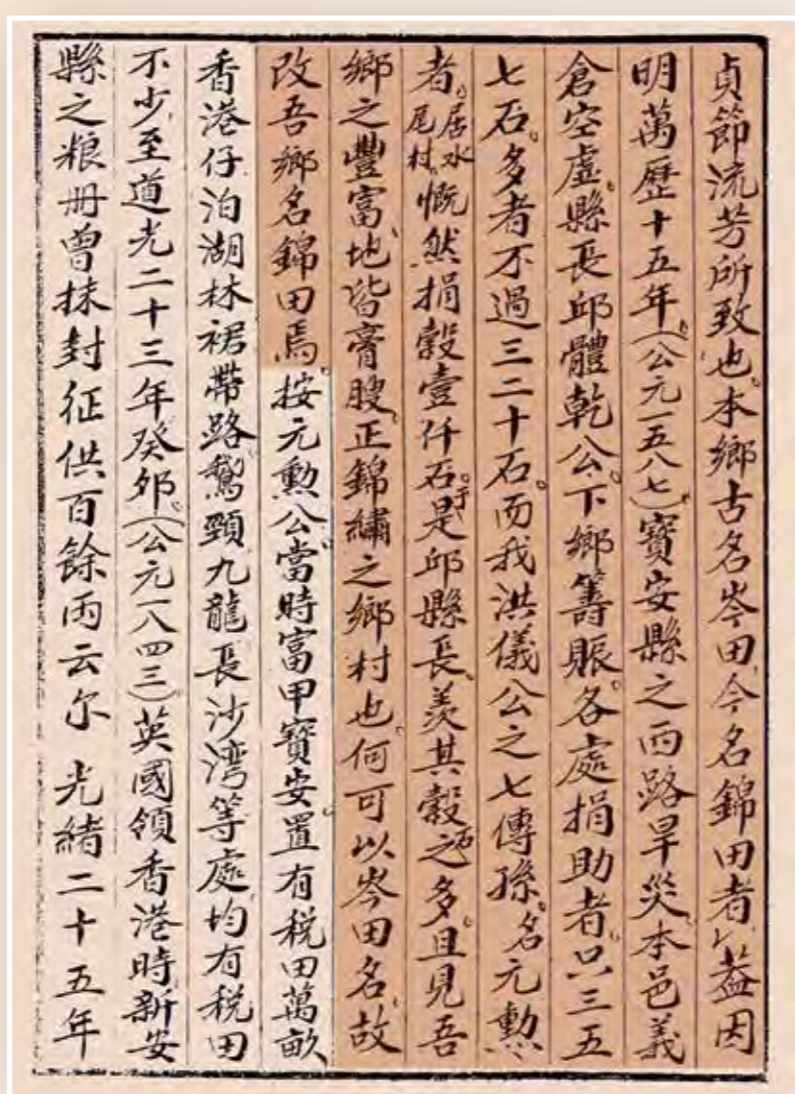 貞節流芳所致也。本鄉古名岑田、今名錦田者、以葢因
明萬歷十五年。(公元一五八七)寶安縣之西路旱災、本邑義
倉空虛。縣長邱體乾公。下鄉籌賬。各處捐助者。只三五
七石。多者不過三二十石。而我洪儀公之七傳孫。名元勲
者。居水尾村。慨然捐穀壹仟石。于是邱縣長、羨其穀石之多。且見吾
鄉之豐富、地皆膏腴、正錦繡之鄉村也。何可以岑田名。故
改吾鄉名錦田焉。按元勲公當時富甲寶安。置有税田萬畝
香港仔泊湖林裙帶路鵝頸九龍長沙湾等處均有税田
不少、至道光二十三年癸卯。(公元一八四三)英國領香港時新安
縣之粮册曾抹封征供百餘両云尔 光緒二十五年